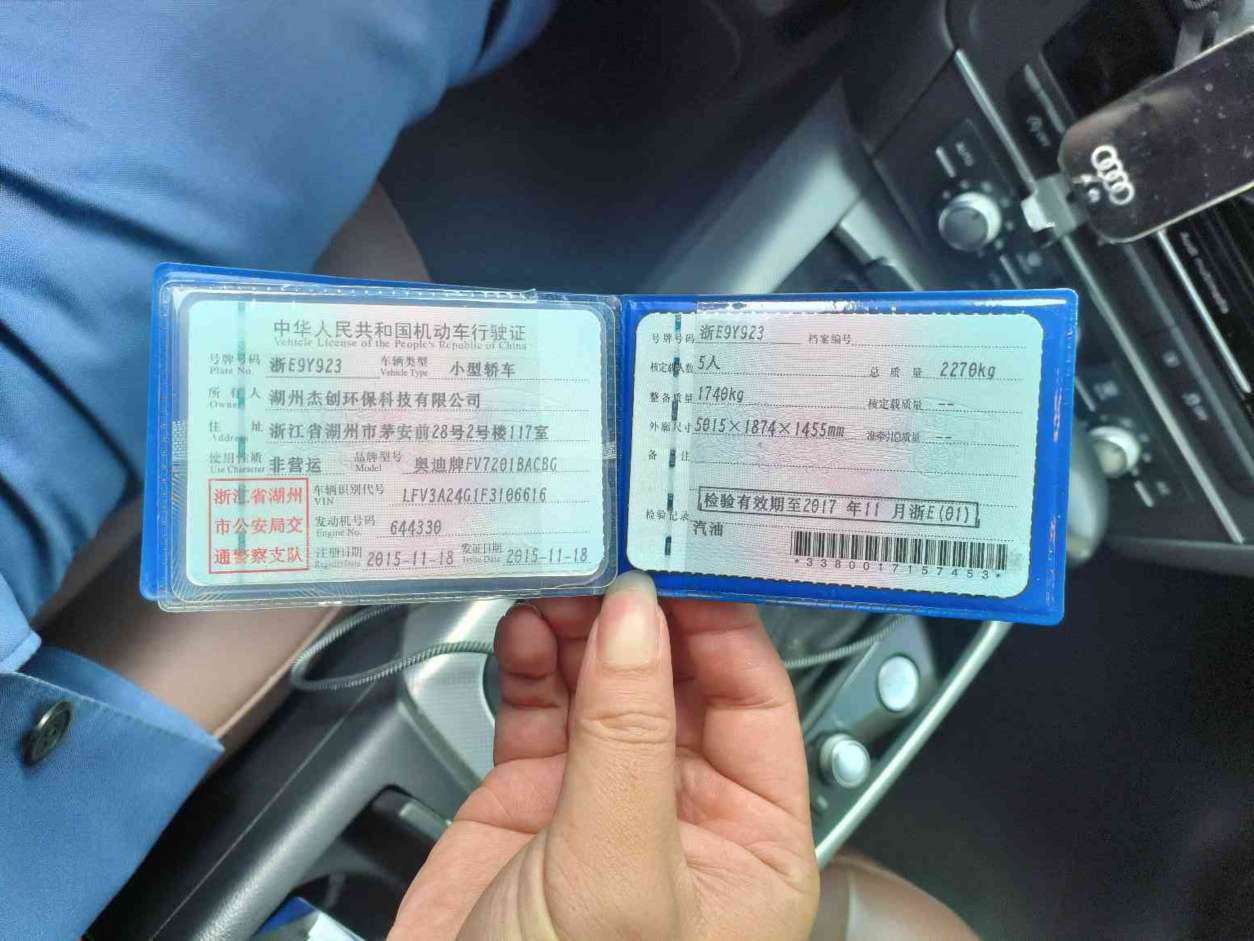 中华人民共和国机动车行驶证
Vehicle License of the People's Republic of China
号牌号码 浙E9Y923 车辆类型 小型轿车
Plate No. Vehicle Type
所有人 湖州杰创环保科技有限公司
Owner
住址 浙江省湖州市茅安前28号2号楼117室
Address
使用性质 非营运 品牌型号 奥迪牌FV7201BACBG
Use Character Model
浙江省湖州
市公安局交
通警察支队
车辆识别代号 LFV3A24G1F3106616
VIN
发动机号码 644330
Engine No.
注册日期 2015-11-18 发证日期 2015-11-18
Register Date Issue Date
号牌号码 浙E9Y923 档案编号
核定载人数 5人 总质量 2270kg
整备质量 1740kg 核定载质量 --
外廓尺寸 5015×1874×1455mm 准牵引总质量 --
备注
检验有效期至2017 年11 月浙E(01)
检验记录
汽油
*3380017157453*
AUTO
Audi multimedia